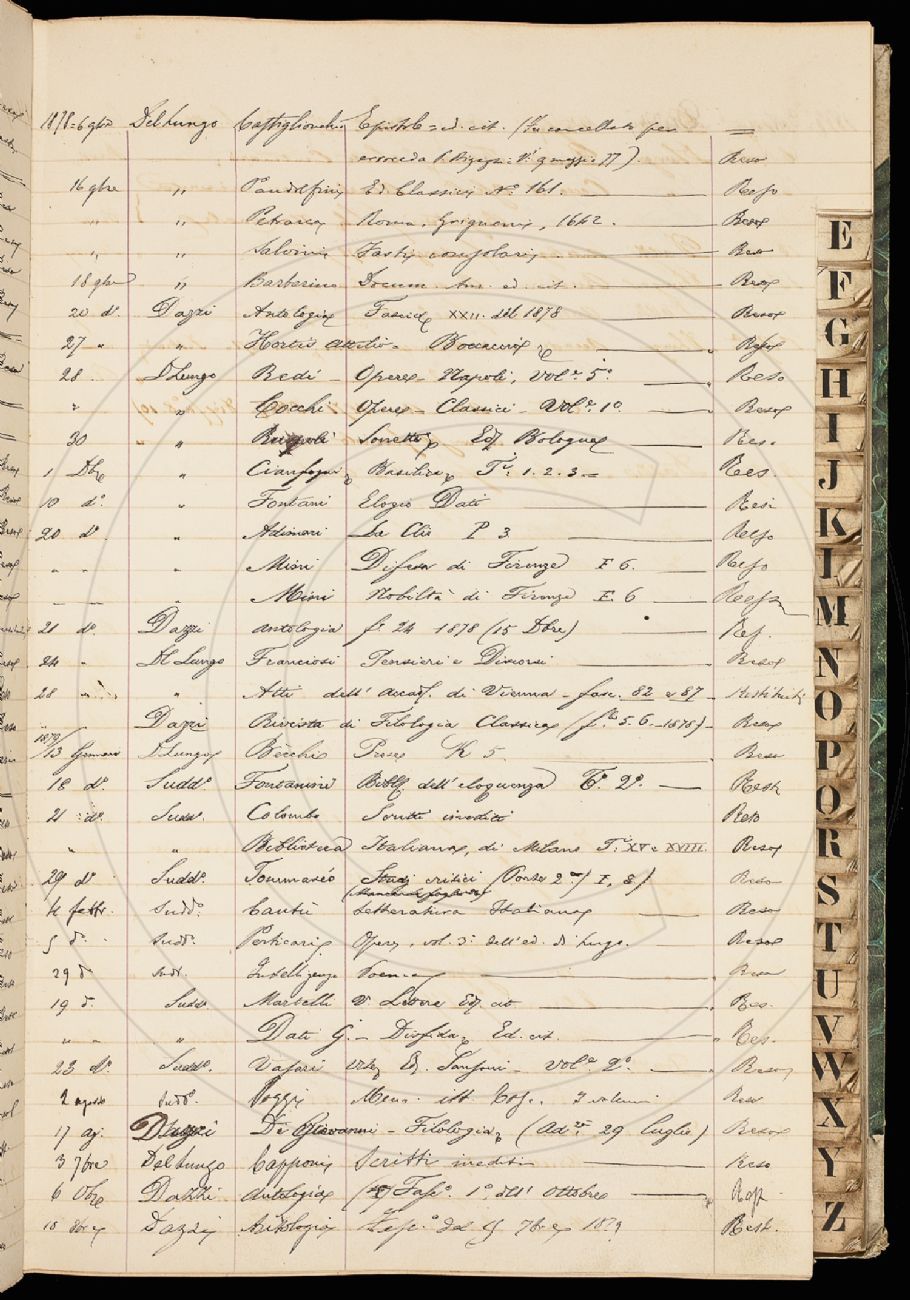 1878 = 6 9bre Del Lungo Castiglionchio Epistole = ed. cit. (Fu cancellato per =
9 maggio 77) Reso
16 9bre " Pandolfini Ed. Classici No. 161. Reso
" " Petrarca Roma, Grignani, 1642. Reso
" " Salvini Fasti consolari Reso
18 9bre " Barberino Docum. Am. ed. cit. Reso
20 do. Dazzi Antologia Fascic. XXII. del 1878 Reso
27 " " Hortis Attilio = Boccaccio Reso
28 D Lungo Redi - Opere - Napoli, Vole. 5o Reso
" " Cocchi Opere - Classici - Vole. 1o. Reso
30 " " Ruspoli Sonetti Ed. Bologna Res.
1 Dbre " Cianfogni Basilica Ti. 1. 2. 3. - Res.
10 do. " Fontani Elogio Dati Resi
20 do " Adimari La Clio P 3 Reso
" " " Mini Difesa di Firenze F. 6. Reso
— — " Mini Nobiltà di Firenze F. 6 Reso
21 do. Dazzi Antologia fo. 24 1878 (15 Dbre) Res.
24 " Del Lungo Franciosi Pensieri e Discorsi Reso
28 " " Atti dell' Accad. di Vienna - fasc. 82 e 87 - Restituiti
" Dazzi Rivista di Filologia Classica (f.o 5. 6 - 1878) - Reso
1879/13 Gennaio D Lungo Becchi Prose K 5 Reso
18 do. Suddo. Fontanini Bibl. dell' eloquenza To. 2o. Resti
21 do. Suddo. Colombo Scritti inediti Reso
" Biblioteca Italiana, di Milano Ti. XV e XVIII. Reso
29 do Suddo. Tommaseo Studj critici (Parte 2a) F, 8) Reso
(Manca il foglietto)
4 febbr. Suddo. Cantù Letteratura Italiana Reso
5 do. Suddo. Perticari Opere, vol. 3o. dell'ed. di Lugo. Reso
29 do Sudd. Intelligenza Poema Reso
19 d. Suddo Martelli V. Lettere Ed. cit Res.
" " " Dati G. - Disfida, Ed. cit. Res.
23 do. Suddo. Vasari Vite, Ed. Sansoni - Vole. 2o. Reso
2 agosto Suddo. Poggi Mem. 3 volumi Reso
17 ag. Dazzi Di Giovanni - Filologia, (Ad. 29 luglio) Reso
3 7bre Del Lungo Capponi Scritti inediti Reso
6 Obre Dazzi Antologia Faso. 1o. dell' Ottobre Resp.
Dazzi Antologia del 7bre 1879 Rest.
E
F
G
H
I
J
K
L
M
N
O
P
Q
R
S
T
U
V
W
X
Y
Z